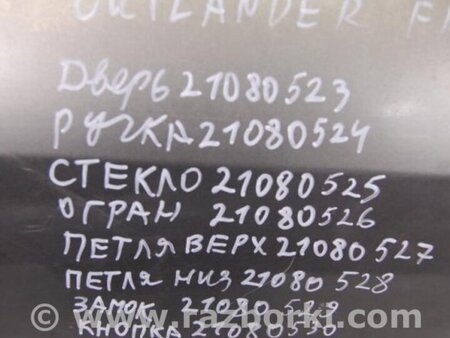 OUTLANDER
Дверь 21080523
РУЧКА 21080524
СТЕКЛО 21080525
ОГРАН 21080526
ПЕТЛЯ ВЕРХ 21080527
ПЕТЛЯ НИЗ 21080528
ЗАМОК 21080529
КНОПКА 21080530
www.razborki.com